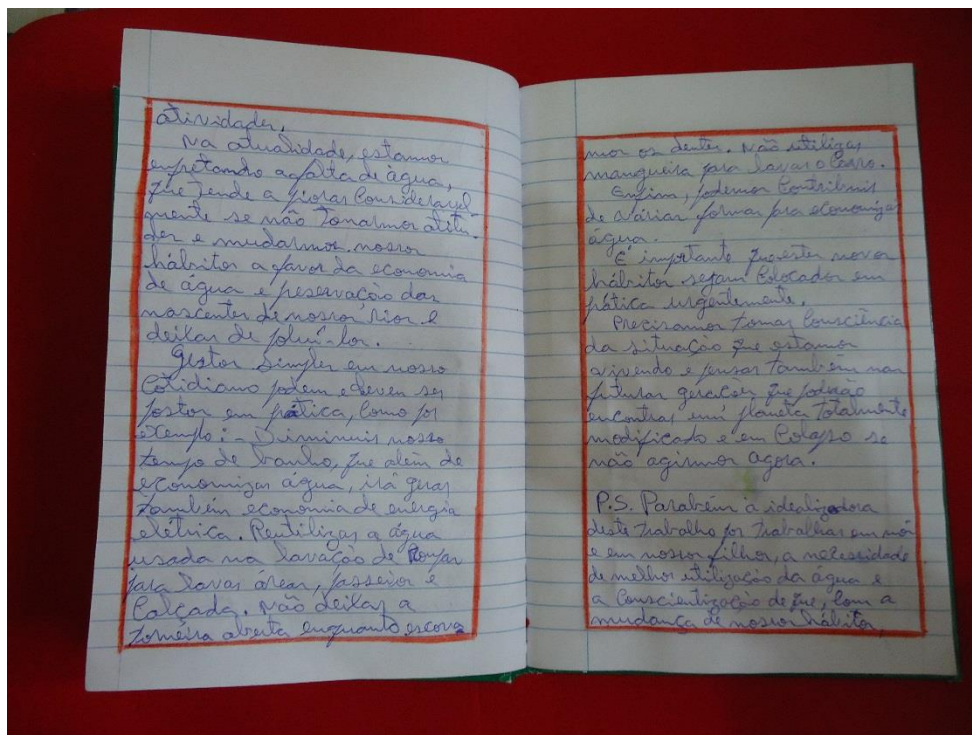 atividades.
Na atualidade, estamos
enfretando a falta de água,
que tende a piorar consideravel-
mente se não tomarmos atitu-
des e mudarmos nossos
hábitos a favor da economia
de água e preservação das
nascentes de nossos rios e
deixar de poluí-los.
Gestos simples em nosso
cotidiano podem e devem ser
postos em prática, como por
exemplo: - Diminuir nosso
tempo de banho, que além de
economizar água, irá gerar
também economia de energia
elétrica. Reutilizar a água
usada na lavação de roupas
para lavar áreas, passeios e
calçada. Não deixar a
torneira aberta enquanto escova
mos os dentes. Não utilizar
mangueira para lavar o carro.
Enfim, podemos contribuir
de várias formas pra economizar
água.
É importante que estes novos
hábitos sejam colocados em
prática urgentemente.
Precisamos tomar consciência
da situação que estamos
vivendo e pensar também nas
futuras gerações que poderão
encontrar um planeta totalmente
modificado e em colapso se
não agirmos agora.
P.S. Parabém a idealizadora
deste trabalho por trabalhar em nós
e em nossos filhos, a necessidade
de melhor utilização da água e
a conscientização de que, com a
mudança de nossos hábitos,